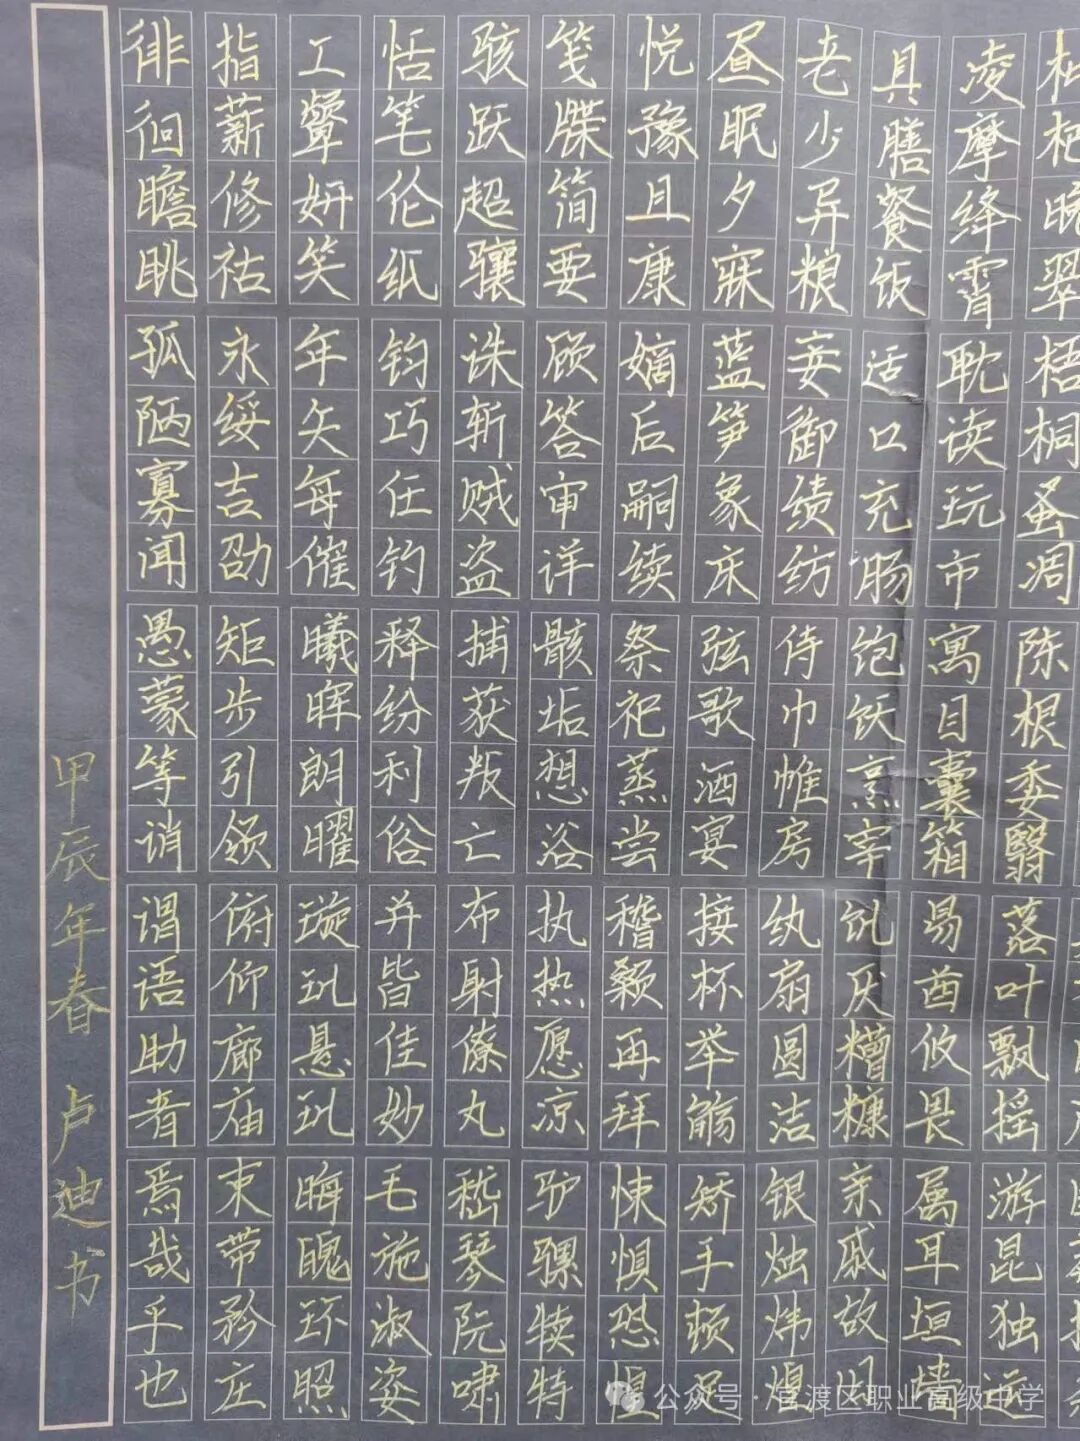 枇杷晚翠梧桐蚤凋陈根委翳落叶飘摇游昆独运
凌摩绛霄耽读玩市寓目囊箱易酉攸畏属耳垣墙
具膳餐饭适口充肠饱饫烹宰饥厌糟糠亲戚故旧
老少异粮妾御绩纺侍巾帷房纨扇圆洁银烛炜煌
昼眠夕寐蓝笋象床弦歌酒宴接杯举觞矫手顿足
悦豫且康嫡后嗣续祭祀蒸尝稽颡再拜悚惧恐惶
笺牒简要顾答审详骸垢想浴执热愿凉驴骡犊特
骇跃超骧诛斩贼盗捕获叛亡布射僚丸嵇琴阮啸
恬笔伦纸钧巧任钓释纷利俗并皆佳妙毛施淑姿
工颦妍笑年矢每催曦晖朗曜璇玑悬玑晦魄环照
指薪修祜永绥吉劭矩步引领俯仰廊庙束带矜庄
徘徊瞻眺孤陋寡闻愚蒙等诮谓语助者焉哉乎也
甲辰年春 卢迪书
公众号·官渡区职业高级中学